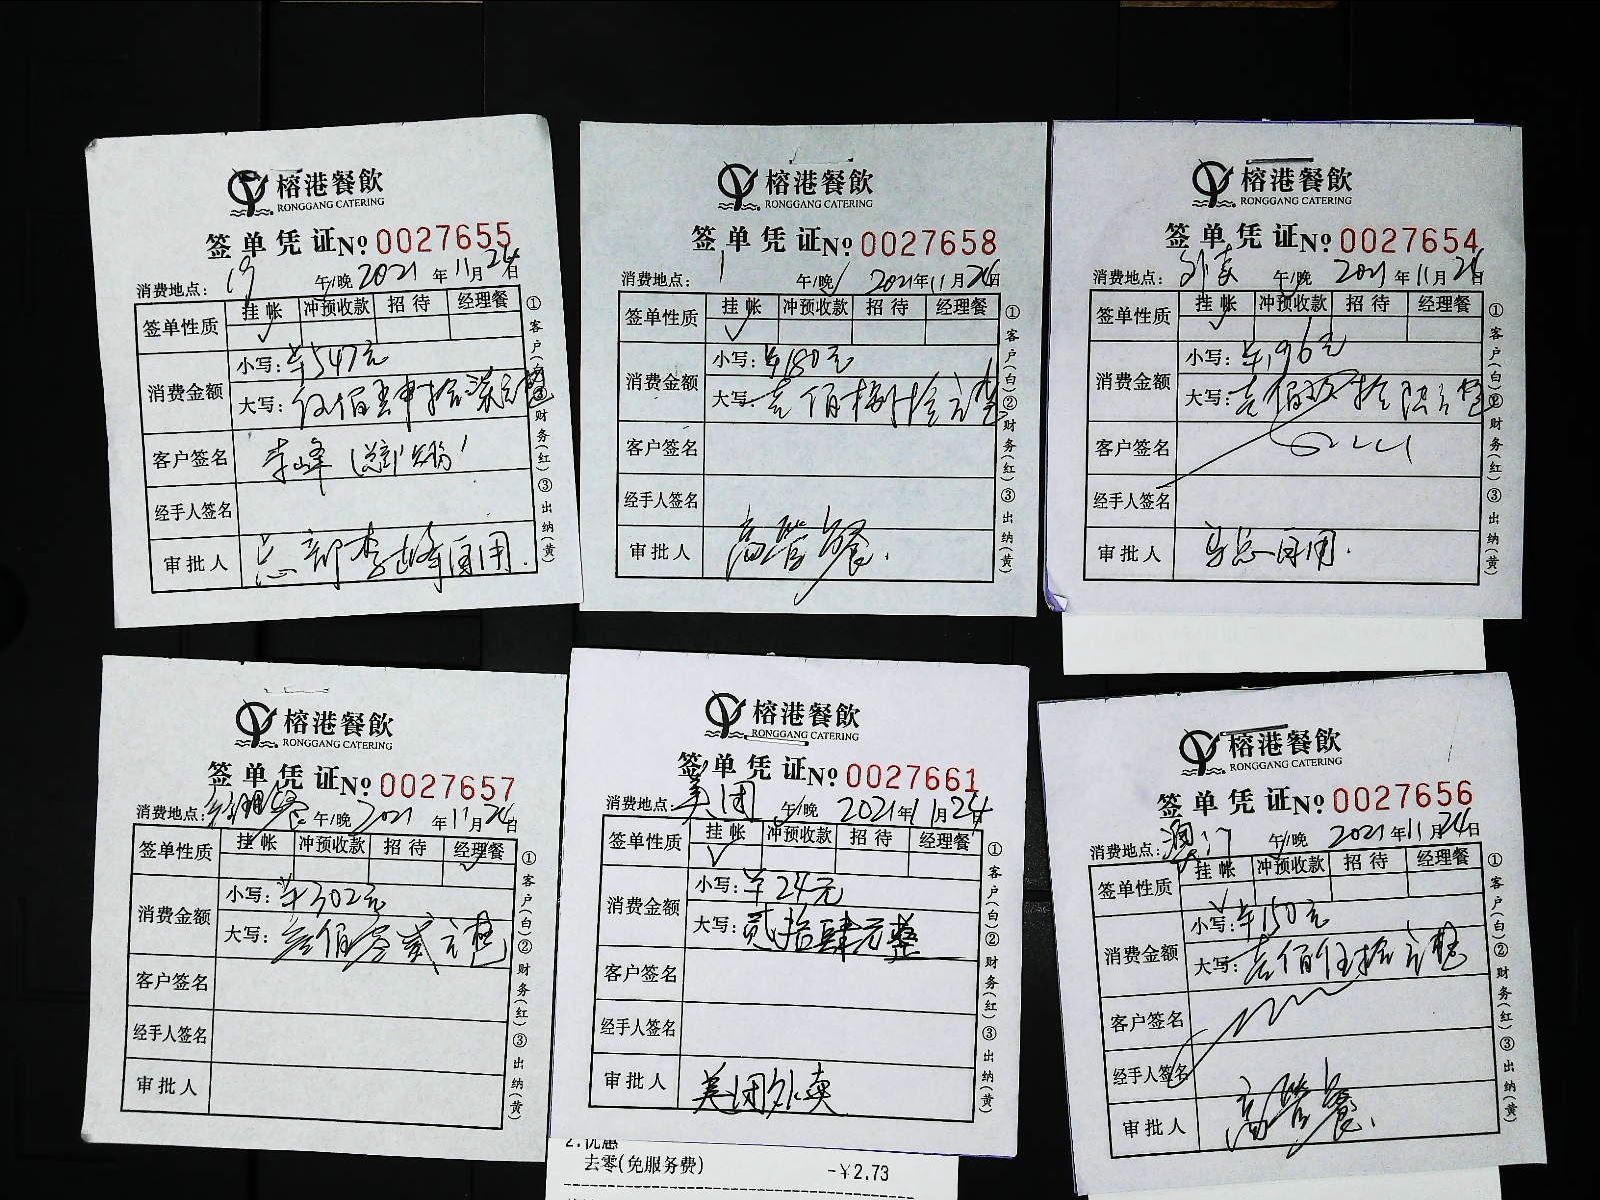 榕港餐飲
RONGGANG CATERING
签单凭证№ 0027655
消费地点： 19 午/晚 2021年11月24日
签单性质 挂帐 冲预收款 招待 经理餐
✓
消费金额 小写：¥547元
大写：伍佰肆拾柒元整
客户签名 李峰
经手人签名
审批人 总部李峰自用.
①客户(白)②财务(红)③出纳(黄)
榕港餐飲
RONGGANG CATERING
签单凭证№ 0027658
消费地点： 1 午/晚 2021年11月24日
签单性质 挂帐 冲预收款 招待 经理餐
✓
消费金额 小写：¥180元
大写：壹佰捌拾元整
客户签名
经手人签名
审批人 高管餐.
①客户(白)②财务(红)③出纳(黄)
榕港餐飲
RONGGANG CATERING
签单凭证№ 0027654
消费地点： 午/晚 2021年11月24日
签单性质 挂帐 冲预收款 招待 经理餐
✓
消费金额 小写：¥196元
大写：壹佰玖拾陆元整
客户签名
经手人签名
审批人 马总自用.
①客户(白)②财务(红)③出纳(黄)
榕港餐飲
RONGGANG CATERING
签单凭证№ 0027657
消费地点：经理餐 午/晚 2021年11月24日
签单性质 挂帐 冲预收款 招待 经理餐
✓
消费金额 小写：¥302元
大写：叁佰零贰元整
客户签名
经手人签名
审批人
①客户(白)②财务(红)③出纳(黄)
榕港餐飲
RONGGANG CATERING
签单凭证№ 0027661
消费地点：美团 午/晚 2021年11月24日
签单性质 挂帐 冲预收款 招待 经理餐
✓
消费金额 小写：¥24元
大写：贰拾肆元整
客户签名
经手人签名
审批人 美团外卖
①客户(白)②财务(红)③出纳(黄)
2.优惠
去零(免服务费) -¥2.73
榕港餐飲
RONGGANG CATERING
签单凭证№ 0027656
消费地点：澳门 午/晚 2021年11月24日
签单性质 挂帐 冲预收款 招待 经理餐
✓
消费金额 小写：¥150元
大写：壹佰伍拾元整
客户签名
经手人签名
审批人 高管餐.
①客户(白)②财务(红)③出纳(黄)